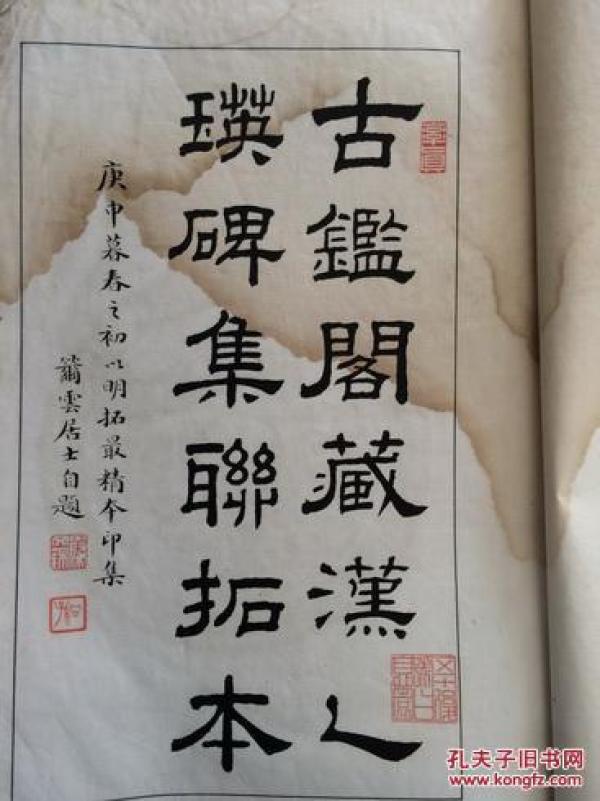 古鑑閣藏漢乙
瑛碑集聯拓本
庚申暮春之初以明拓最精本印集
籀雲居士自題
孔夫子旧书网
www.kongfz.com